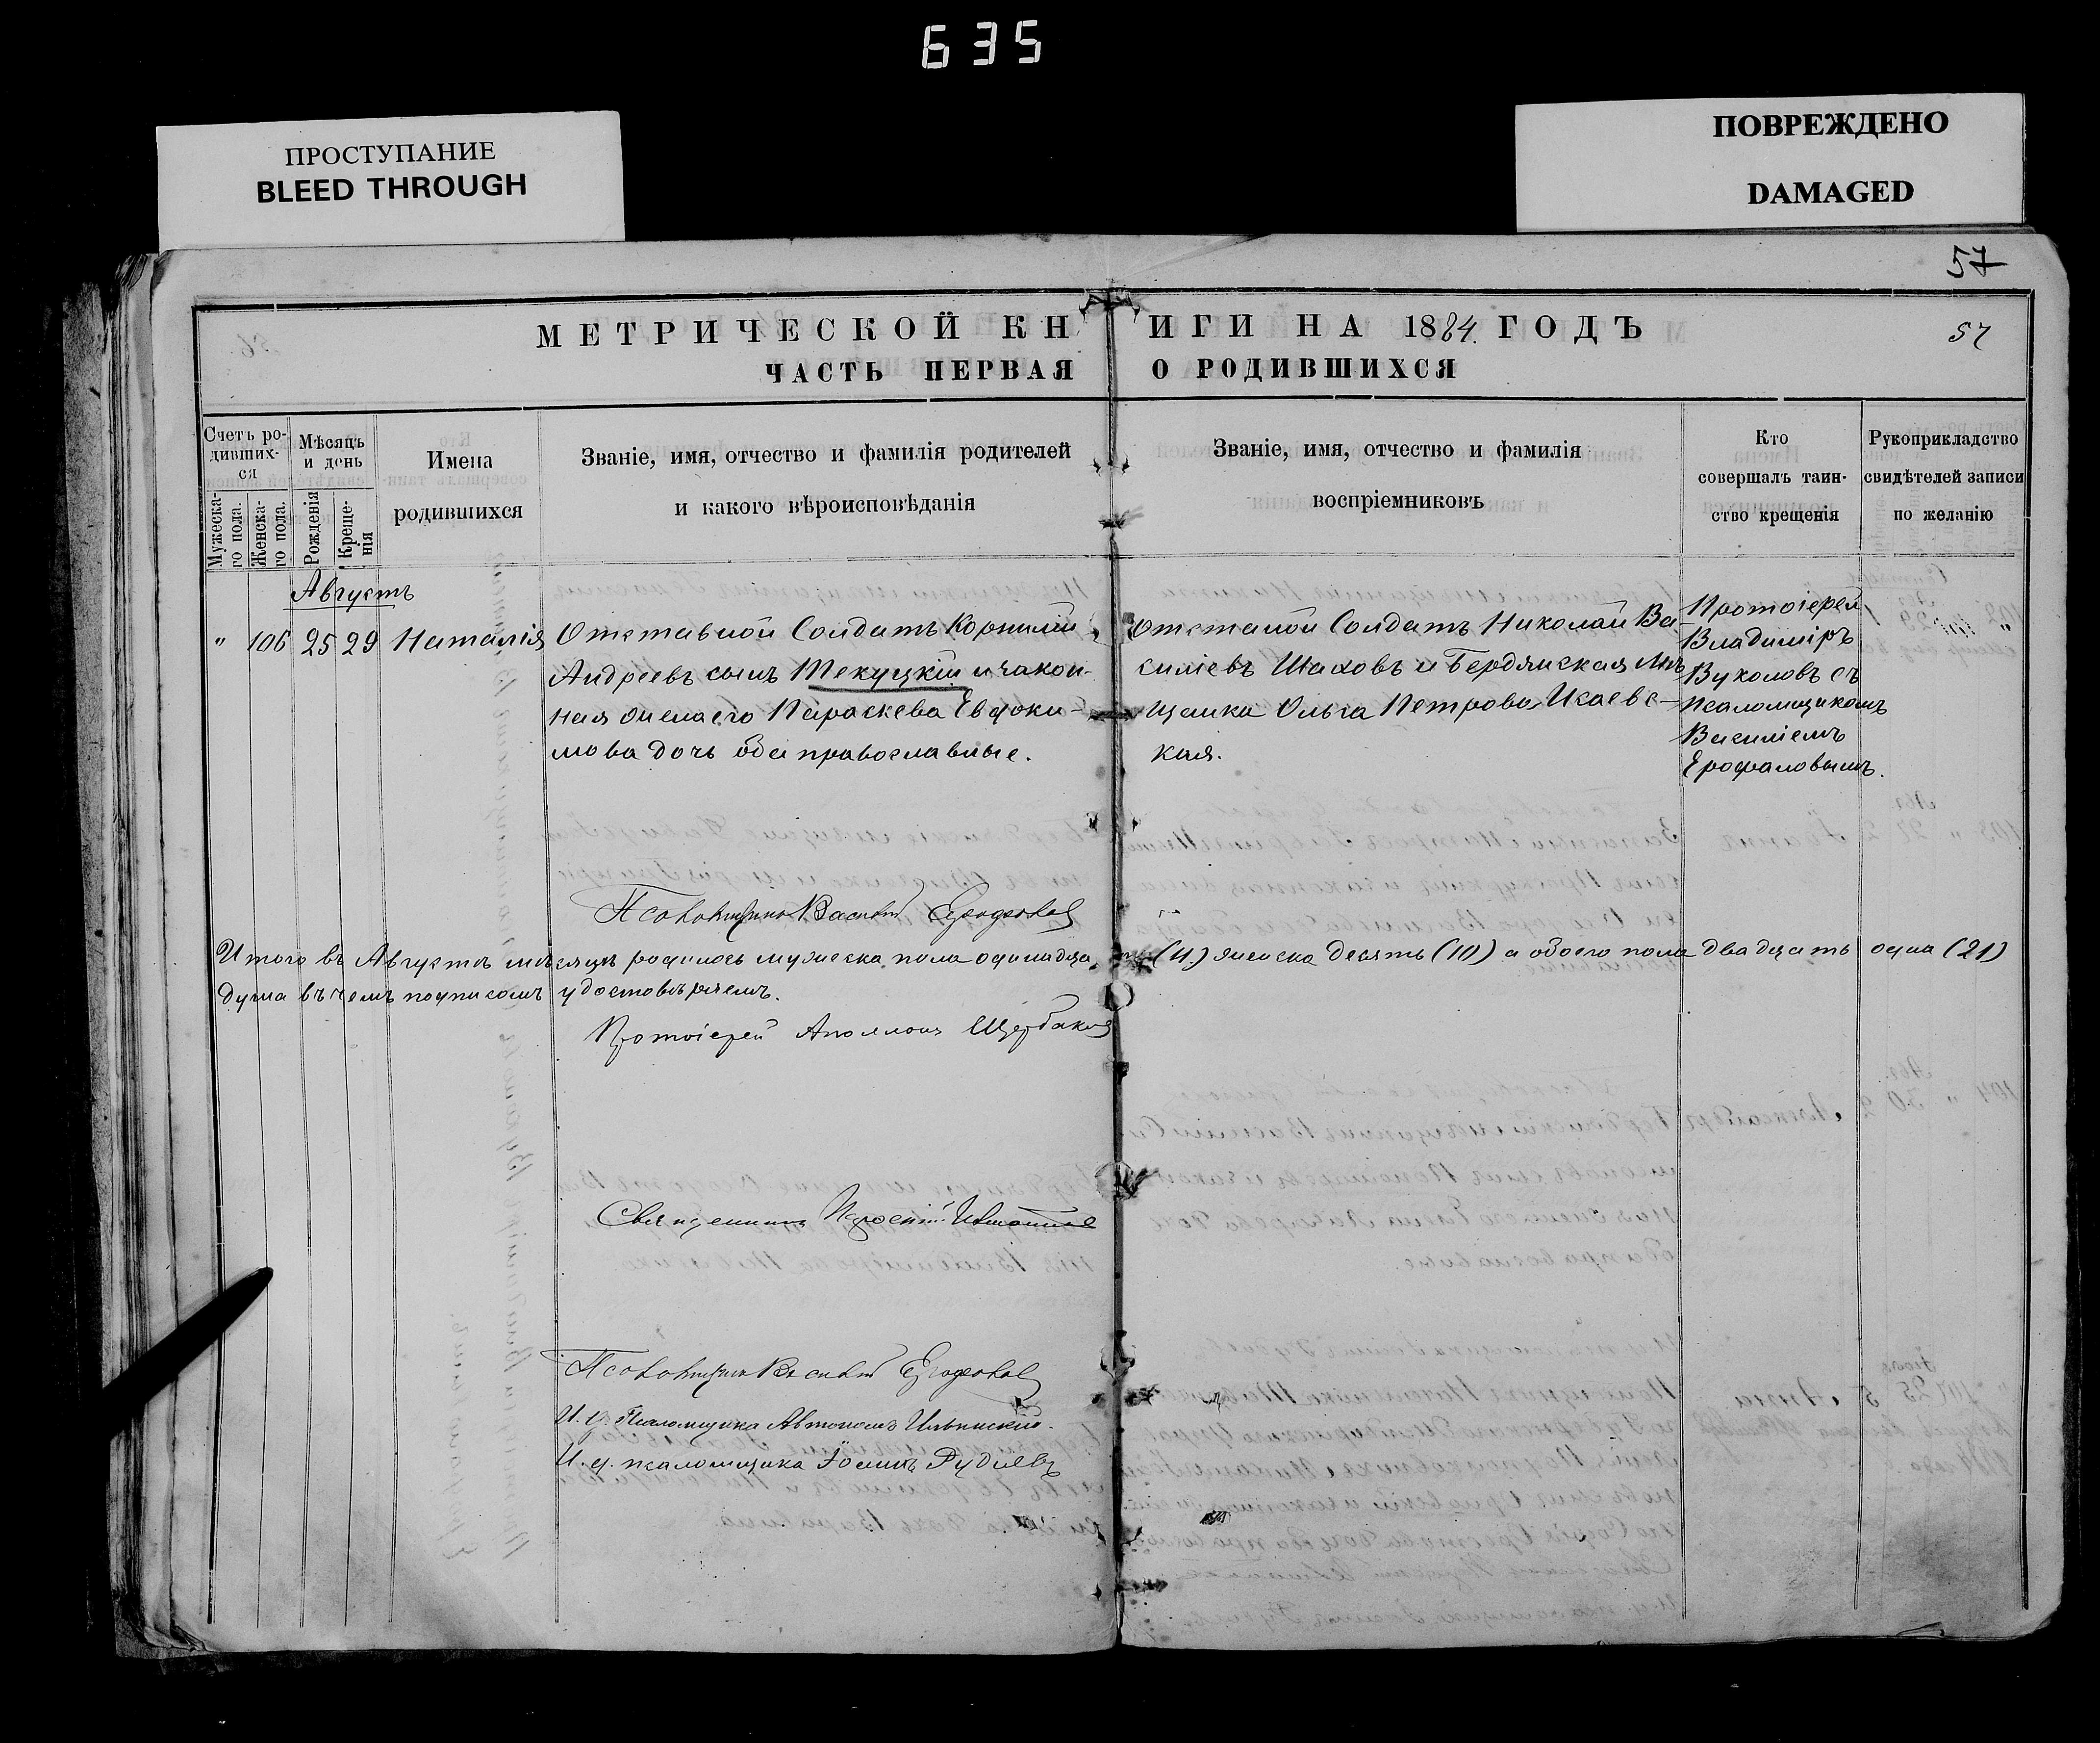 635
ПРОСТУПАНИЕ
BLEED THROUGH
ПОВРЕЖДЕНО
DAMAGED
57
МЕТРИЧЕСКОЙ КНИГИ НА 1884. ГОДЪ
57
ЧАСТЬ ПЕРВАЯ О РОДИВШИХСЯ
Счетъ ро-
дивших-
ся
Мужеска-
го пола.
Женска-
го пола.
Мѣсяцъ
и день
Рожденія
Креще-
нія
Имена
родившихся
Званіе, имя, отчество и фамилія родителей
и какого вѣроисповѣданія
Званіе, имя, отчество и фамилія
воспріемниковъ
Кто
совершалъ таин-
ство крещенія
Рукоприкладство
свидѣтелей записи
по желанію
Августъ
" 106 25 29 Наталія
Отставной Солдатъ Корнилій
Андреевъ сынъ Текуцкій и закон-
ная жена его Параскева Евдоки-
мова дочь оба православные.
Отставной Солдатъ Николай Ва
силіевъ Шаховъ и Бердянская Мѣ
щанка Ольга Петрова Исаевс-
кая.
Протоіерей
Владиміръ
Вуколовъ съ
псаломщикомъ
Василіемъ
Ерофаловымъ.
Псаломщикъ Василій
Итого въ Августѣ мѣсяцѣ родилось мужеска пола одинадцать (11) женска десять (10) а обоего пола двадцать одна (21)
душа въ чемъ подписомъ удостовѣряемъ.
Протоіерей Аполлонъ Щербаковъ
Священникъ
Псаломщикъ Василій
И. д. Псаломщика Автономъ Ильинскій.
И. д. псаломщика Іосифъ Рудневъ